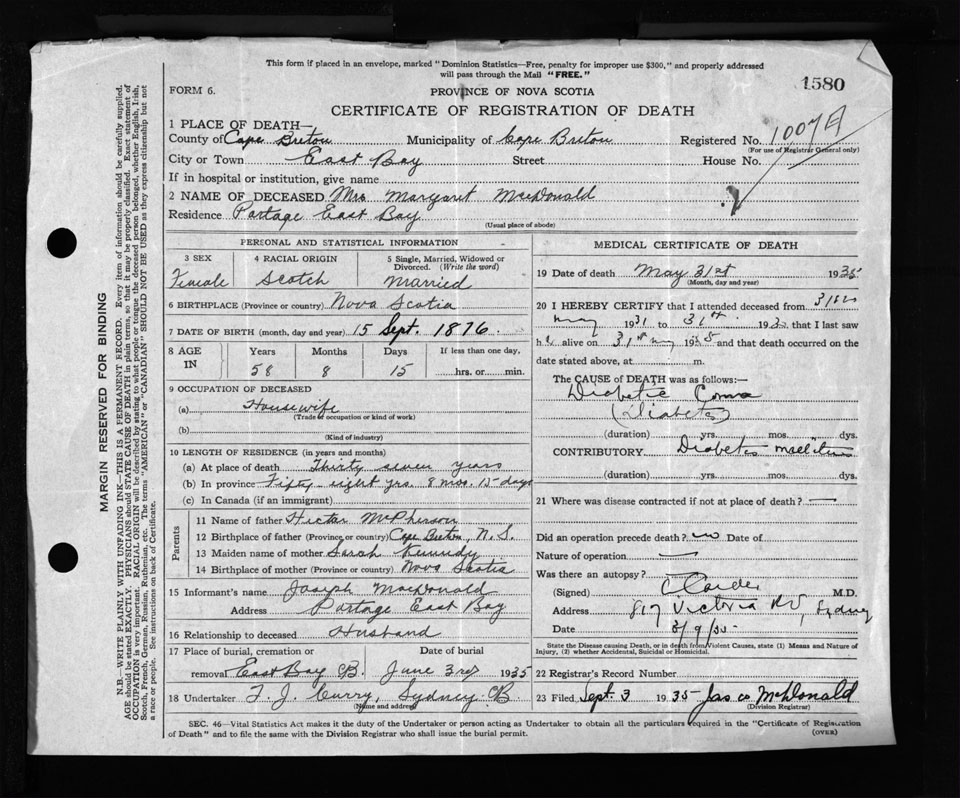 This form if placed in an envelope, marked "Dominion Statistics—Free, penalty for improper use $300," and properly addressed
will pass through the Mail "FREE."
1580
FORM 6.
PROVINCE OF NOVA SCOTIA
CERTIFICATE OF REGISTRATION OF DEATH
1 PLACE OF DEATH—
County of Cape Breton Municipality of Cape Breton Registered No. 1007
(For use of Registrar General only)
City or Town East Bay Street House No.
If in hospital or institution, give name
2 NAME OF DECEASED Mrs Margaret MacDonald
Residence Portage East Bay
(Usual place of abode)
PERSONAL AND STATISTICAL INFORMATION
3 SEX 4 RACIAL ORIGIN 5 Single, Married, Widowed or Divorced. (Write the word)
Female Scotch Married
6 BIRTHPLACE (Province or country) Nova Scotia
7 DATE OF BIRTH (month, day and year) 15 Sept. 1876
8 AGE IN Years Months Days If less than one day,
58 8 15 hrs. or min.
9 OCCUPATION OF DECEASED
(a) Housewife
(Trade, occupation or kind of work)
(b)
(Kind of industry)
10 LENGTH OF RESIDENCE (in years and months)
(a) At place of death Thirty seven years
(b) In province Fifty eight yrs. 8 mos. 15 days
(c) In Canada (if an immigrant)
Parents
11 Name of father Hector McPherson
12 Birthplace of father (Province or country) Cape Breton, N.S.
13 Maiden name of mother Sarah Kennedy
14 Birthplace of mother (Province or country) Nova Scotia
15 Informant's name Joseph MacDonald
Address Portage East Bay
16 Relationship to deceased Husband
17 Place of burial, cremation or removal Date of burial
East Bay C.B. June 3rd 1935
18 Undertaker F. J. Curry, Sydney CB.
(Name and address)
MEDICAL CERTIFICATE OF DEATH
19 Date of death May 31st 1935
(Month, day and year)
20 I HEREBY CERTIFY that I attended deceased from 31st
May 1931 to 31st 193 that I last saw
h alive on 31st May 1935 and that death occurred on the
date stated above, at m.
The CAUSE of DEATH was as follows:—
Diabetic Coma
(Diabetes)
(duration) yrs. mos. dys.
CONTRIBUTORY Diabetes Mellitus
(duration) yrs. mos. dys.
21 Where was disease contracted if not at place of death? —
Did an operation precede death? no Date of
Nature of operation —
Was there an autopsy?
(Signed) M.D.
Address 817 Victoria Rd, Sydney
Date 3/9/35
State the Disease causing Death, or in death from Violent Causes, state (1) Means and Nature of
Injury, (2) whether Accidental, Suicidal or Homicidal.
22 Registrar's Record Number
23 Filed Sept. 3 1935 Jas McDonald
(Division Registrar)
SEC. 46—Vital Statistics Act makes it the duty of the Undertaker or person acting as Undertaker to obtain all the particulars required in the "Certificate of Registration
of Death" and to file the same with the Division Registrar who shall issue the burial permit.
(OVER)
MARGIN RESERVED FOR BINDING
N.B.—WRITE PLAINLY WITH UNFADING INK—THIS IS A PERMANENT RECORD. Every item of information should be carefully supplied.
AGE should be stated EXACTLY. PHYSICIANS should STATE CAUSE OF DEATH in plain terms, so that it may be properly classified. Exact statement of
OCCUPATION is very important. RACIAL ORIGIN will be described by stating to what people or tongue the deceased person belonged, whether English, Irish,
Scotch, French, German, Russian, Ruthenian, etc. The terms "AMERICAN" or "CANADIAN" SHOULD NOT BE USED as they express citizenship but not
a race or people. See instructions on back of Certificate.